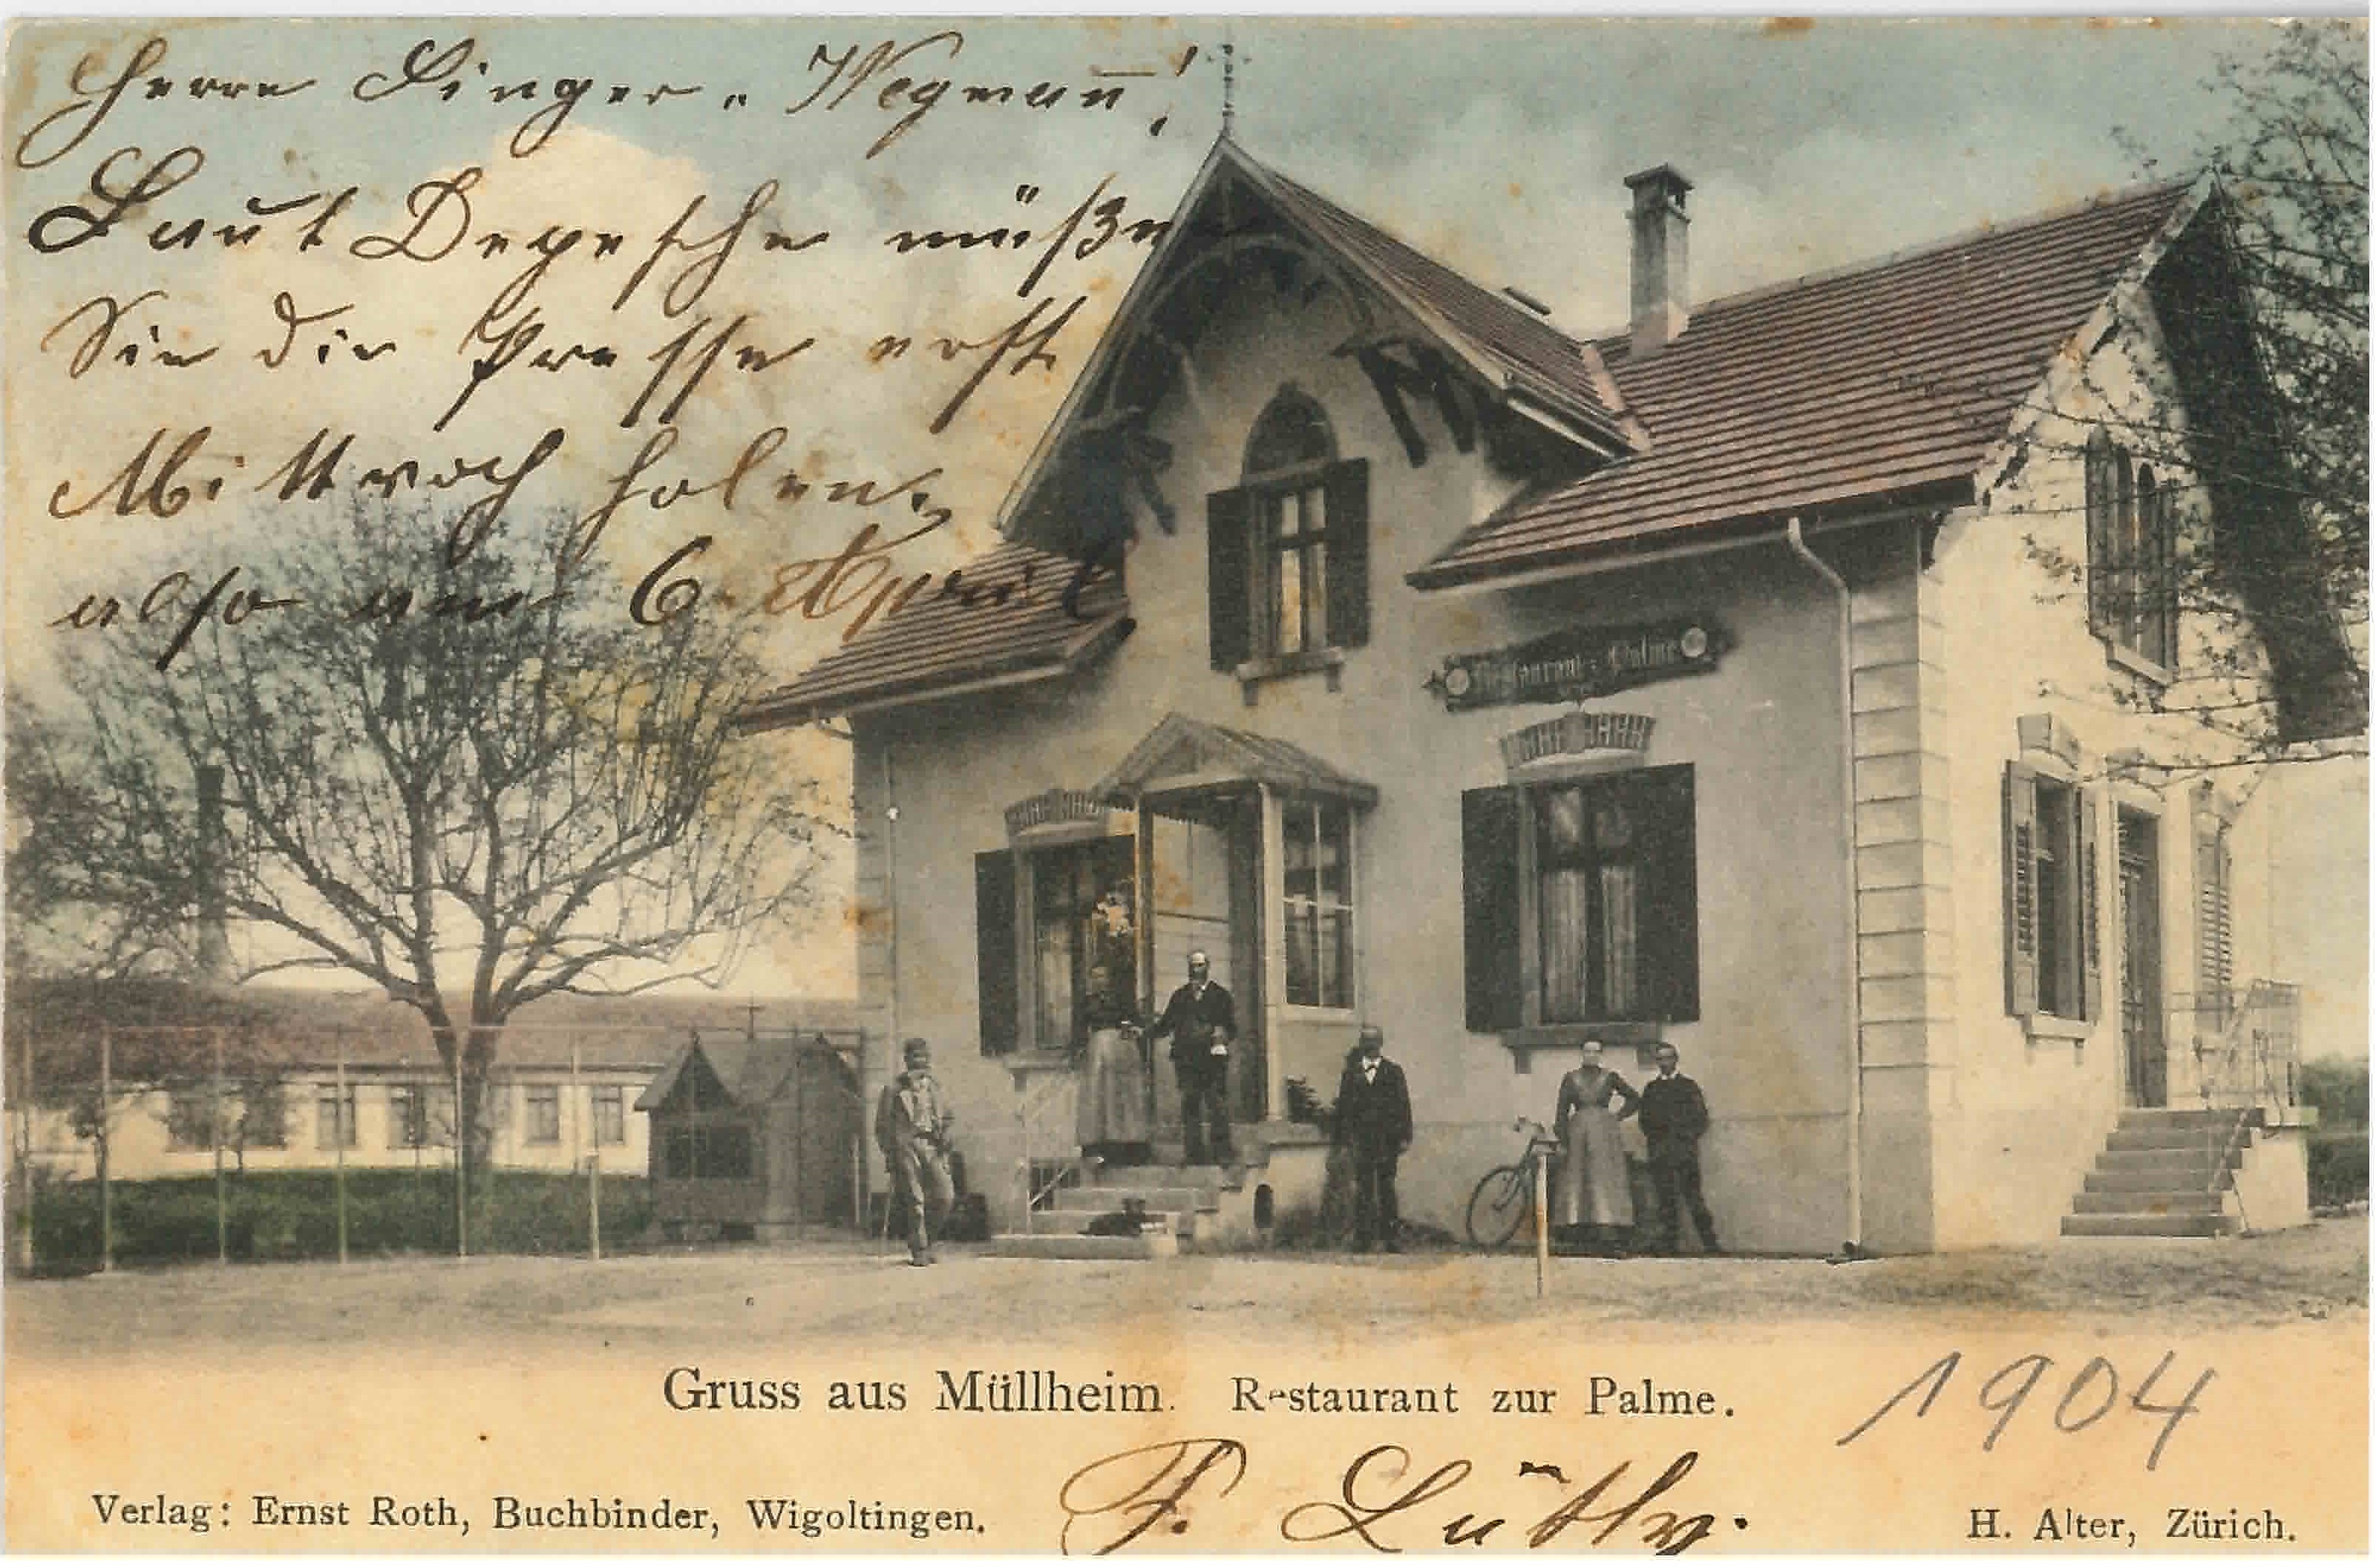 Herre Singer-Wegmañ!
Laut Depesche müße
Sie die Presse erst
Mittwoch holen.
also am 6. April
Restaurant z. Palme
Gruss aus Müllheim. Restaurant zur Palme.
1904
F. Lüthy.
Verlag: Ernst Roth, Buchbinder, Wigoltingen.
H. Alter, Zürich.